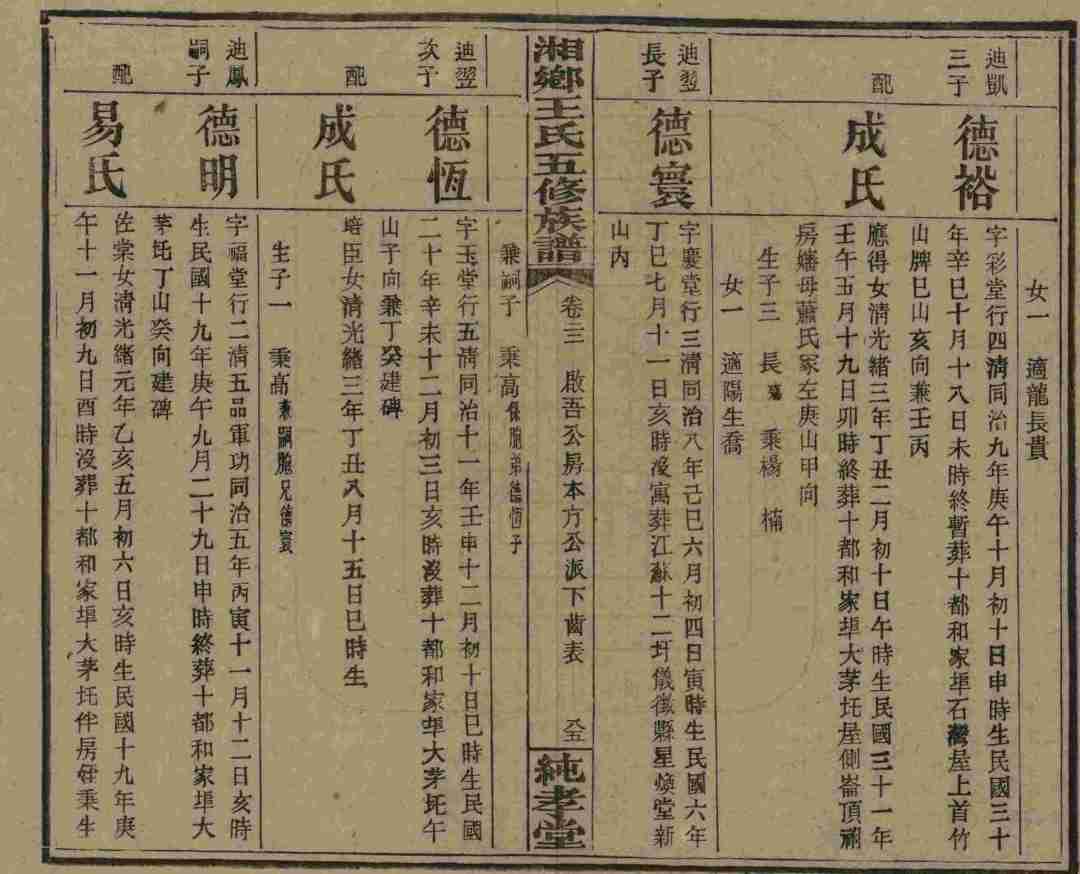 女一　適龍長貴
迪凱三子
德裕
字彩堂行四清同治九年庚午十月初十日申時生民國三十
年辛巳十月十八日未時終暫葬十都和家埠石灣屋上首竹
山牌巳山亥向兼壬丙
配
成氏
應得女清光緒三年丁丑二月初十日午時生民國三十一年
壬午五月十九日卯時終葬十都和家埠大茅坵屋側崙頂祔
房嬸母蕭氏冢左庚山甲向
生子三　長殤　乘楊　楠
女一　適陽生喬
迪翌長子
德寰
字慶堂行三清同治八年己巳六月初四日寅時生民國六年
丁巳七月十一日亥時沒寓葬江蘇十二圩儀徵縣星煥堂新
山內
湘鄉王氏五修族譜
卷三　啟吾公房本方公派下齒表
純孝堂
兼嗣子　乘高保胞弟德恆子
迪翌次子
德恆
字玉堂行五清同治十一年壬申十二月初十日巳時生民國
二十年辛未十二月初三日亥時沒葬十都和家埠大茅坵午
山子向兼丁癸建碑
配
成氏
培臣女清光緒三年丁丑八月十五日巳時生
生子一　乘高兼嗣胞兄德寰
迪鳳嗣子
德明
字福堂行二清五品軍功同治五年丙寅十一月十二日亥時
生民國十九年庚午九月二十九日申時終葬十都和家埠大
茅坵丁山癸向建碑
配
易氏
佐棠女清光緒元年乙亥五月初六日亥時生民國十九年庚
午十一月初九日酉時沒葬十都和家埠大茅坵伴房姪乘生